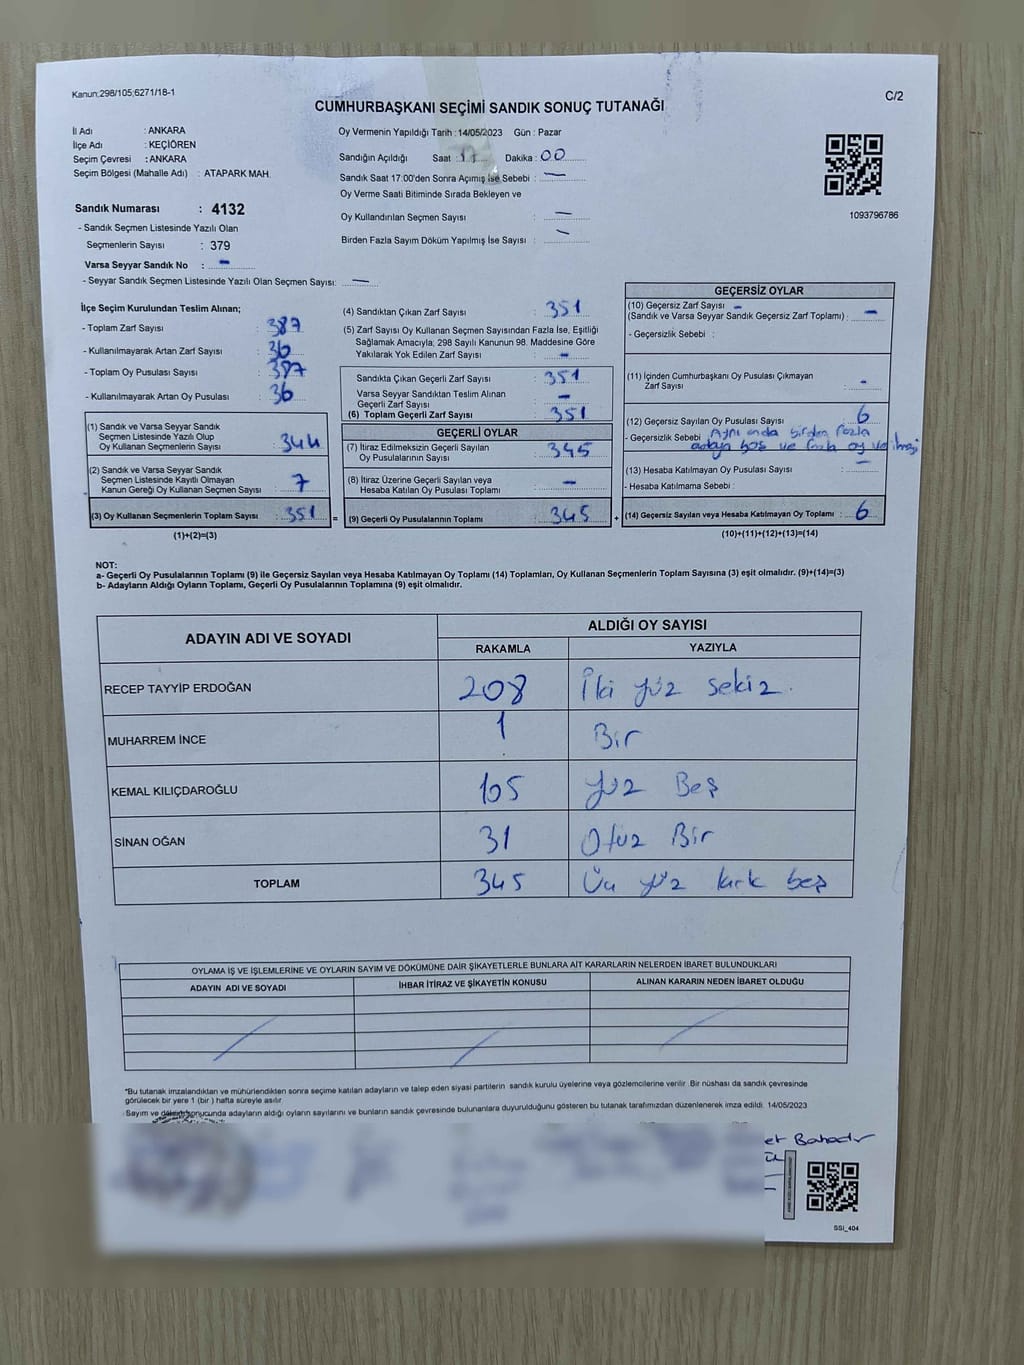 Kanun;298/105;6271/18-1
C/2
CUMHURBAŞKANI SEÇİMİ SANDIK SONUÇ TUTANAĞI
İl Adı : ANKARA
İlçe Adı : KEÇİÖREN
Seçim Çevresi : ANKARA
Seçim Bölgesi (Mahalle Adı) : ATAPARK MAH.
Sandık Numarası : 4132
- Sandık Seçmen Listesinde Yazılı Olan
Seçmenlerin Sayısı : 379
Varsa Seyyar Sandık No : -
- Seyyar Sandık Seçmen Listesinde Yazılı Olan Seçmen Sayısı: -
Oy Vermenin Yapıldığı Tarih : 14/05/2023 Gün : Pazar
Sandığın Açıldığı Saat : Dakika : 00
Sandık Saat 17:00'den Sonra Açılmış İse Sebebi : -
Oy Verme Saati Bitiminde Sırada Bekleyen ve
Oy Kullandırılan Seçmen Sayısı : -
Birden Fazla Sayım Döküm Yapılmış İse Sayısı : -
1093796786
İlçe Seçim Kurulundan Teslim Alınan;
- Toplam Zarf Sayısı : 387
- Kullanılmayarak Artan Zarf Sayısı : 36
- Toplam Oy Pusulası Sayısı : 387
- Kullanılmayarak Artan Oy Pusulası : 36
(1) Sandık ve Varsa Seyyar Sandık
Seçmen Listesinde Yazılı Olup
Oy Kullanan Seçmenlerin Sayısı : 344
(2) Sandık ve Varsa Seyyar Sandık
Seçmen Listesinde Kayıtlı Olmayan
Kanun Gereği Oy Kullanan Seçmen Sayısı : 7
(3) Oy Kullanan Seçmenlerin Toplam Sayısı : 351
(1)+(2)=(3)
(4) Sandıktan Çıkan Zarf Sayısı : 351
(5) Zarf Sayısı Oy Kullanan Seçmen Sayısından Fazla İse, Eşitliği
Sağlamak Amacıyla; 298 Sayılı Kanunun 98. Maddesine Göre
Yakılarak Yok Edilen Zarf Sayısı : -
Sandıkta Çıkan Geçerli Zarf Sayısı : 351
Varsa Seyyar Sandıktan Teslim Alınan
Geçerli Zarf Sayısı : -
(6) Toplam Geçerli Zarf Sayısı : 351
GEÇERLİ OYLAR
(7) İtiraz Edilmeksizin Geçerli Sayılan
Oy Pusulalarının Sayısı : 345
(8) İtiraz Üzerine Geçerli Sayılan veya
Hesaba Katılan Oy Pusulası Toplamı : -
= (9) Geçerli Oy Pusulalarının Toplamı : 345
GEÇERSİZ OYLAR
(10) Geçersiz Zarf Sayısı -
(Sandık ve Varsa Seyyar Sandık Geçersiz Zarf Toplamı) : -
- Geçersizlik Sebebi :
(11) İçinden Cumhurbaşkanı Oy Pusulası Çıkmayan
Zarf Sayısı : -
(12) Geçersiz Sayılan Oy Pusulası Sayısı : 6
- Geçersizlik Sebebi Aynı anda birden fazla
adaya boş ve fazla oy verilmesi
(13) Hesaba Katılmayan Oy Pusulası Sayısı : -
- Hesaba Katılmama Sebebi :
+ (14) Geçersiz Sayılan veya Hesaba Katılmayan Oy Toplamı : 6
(10)+(11)+(12)+(13)=(14)
NOT:
a- Geçerli Oy Pusulalarının Toplamı (9) ile Geçersiz Sayılan veya Hesaba Katılmayan Oy Toplamı (14) Toplamları, Oy Kullanan Seçmenlerin Toplam Sayısına (3) eşit olmalıdır. (9)+(14)=(3)
b- Adayların Aldığı Oyların Toplamı, Geçerli Oy Pusulalarının Toplamına (9) eşit olmalıdır.
ADAYIN ADI VE SOYADI ALDIĞI OY SAYISI
RAKAMLA YAZIYLA
RECEP TAYYİP ERDOĞAN 208 İki yüz sekiz.
MUHARREM İNCE 1 Bir
KEMAL KILIÇDAROĞLU 105 yüz Beş
SİNAN OĞAN 31 Otuz Bir
TOPLAM 345 Üç yüz kırk beş
OYLAMA İŞ VE İŞLEMLERİNE VE OYLARIN SAYIM VE DÖKÜMÜNE DAİR ŞİKAYETLERLE BUNLARA AİT KARARLARIN NELERDEN İBARET BULUNDUKLARI
ADAYIN ADI VE SOYADI İHBAR İTİRAZ VE ŞİKAYETİN KONUSU ALINAN KARARIN NEDEN İBARET OLDUĞU
*Bu tutanak imzalandıktan ve mühürlendikten sonra seçime katılan adayların ve talep eden siyasi partilerin sandık kurulu üyelerine veya gözlemcilerine verilir .Bir nüshası da sandık çevresinde
görülecek bir yere 1 (bir ) hafta süreyle asılır.
Sayım ve döküm sonucunda adayların aldığı oyların sayılarını ve bunların sandık çevresinde bulunanlara duyurulduğunu gösteren bu tutanak tarafımızdan düzenlenerek imza edildi. 14/05/2023
et Bahadır
SSI_404